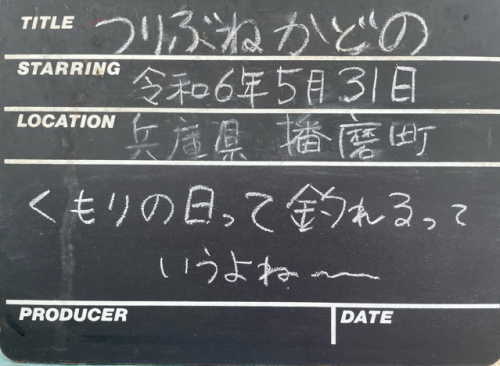 TITLE つりぶねかどの
STARRING 令和6年5月31日
LOCATION 兵庫県 播磨町
くもりの日って釣れるって
いうよね〜
PRODUCER DATE